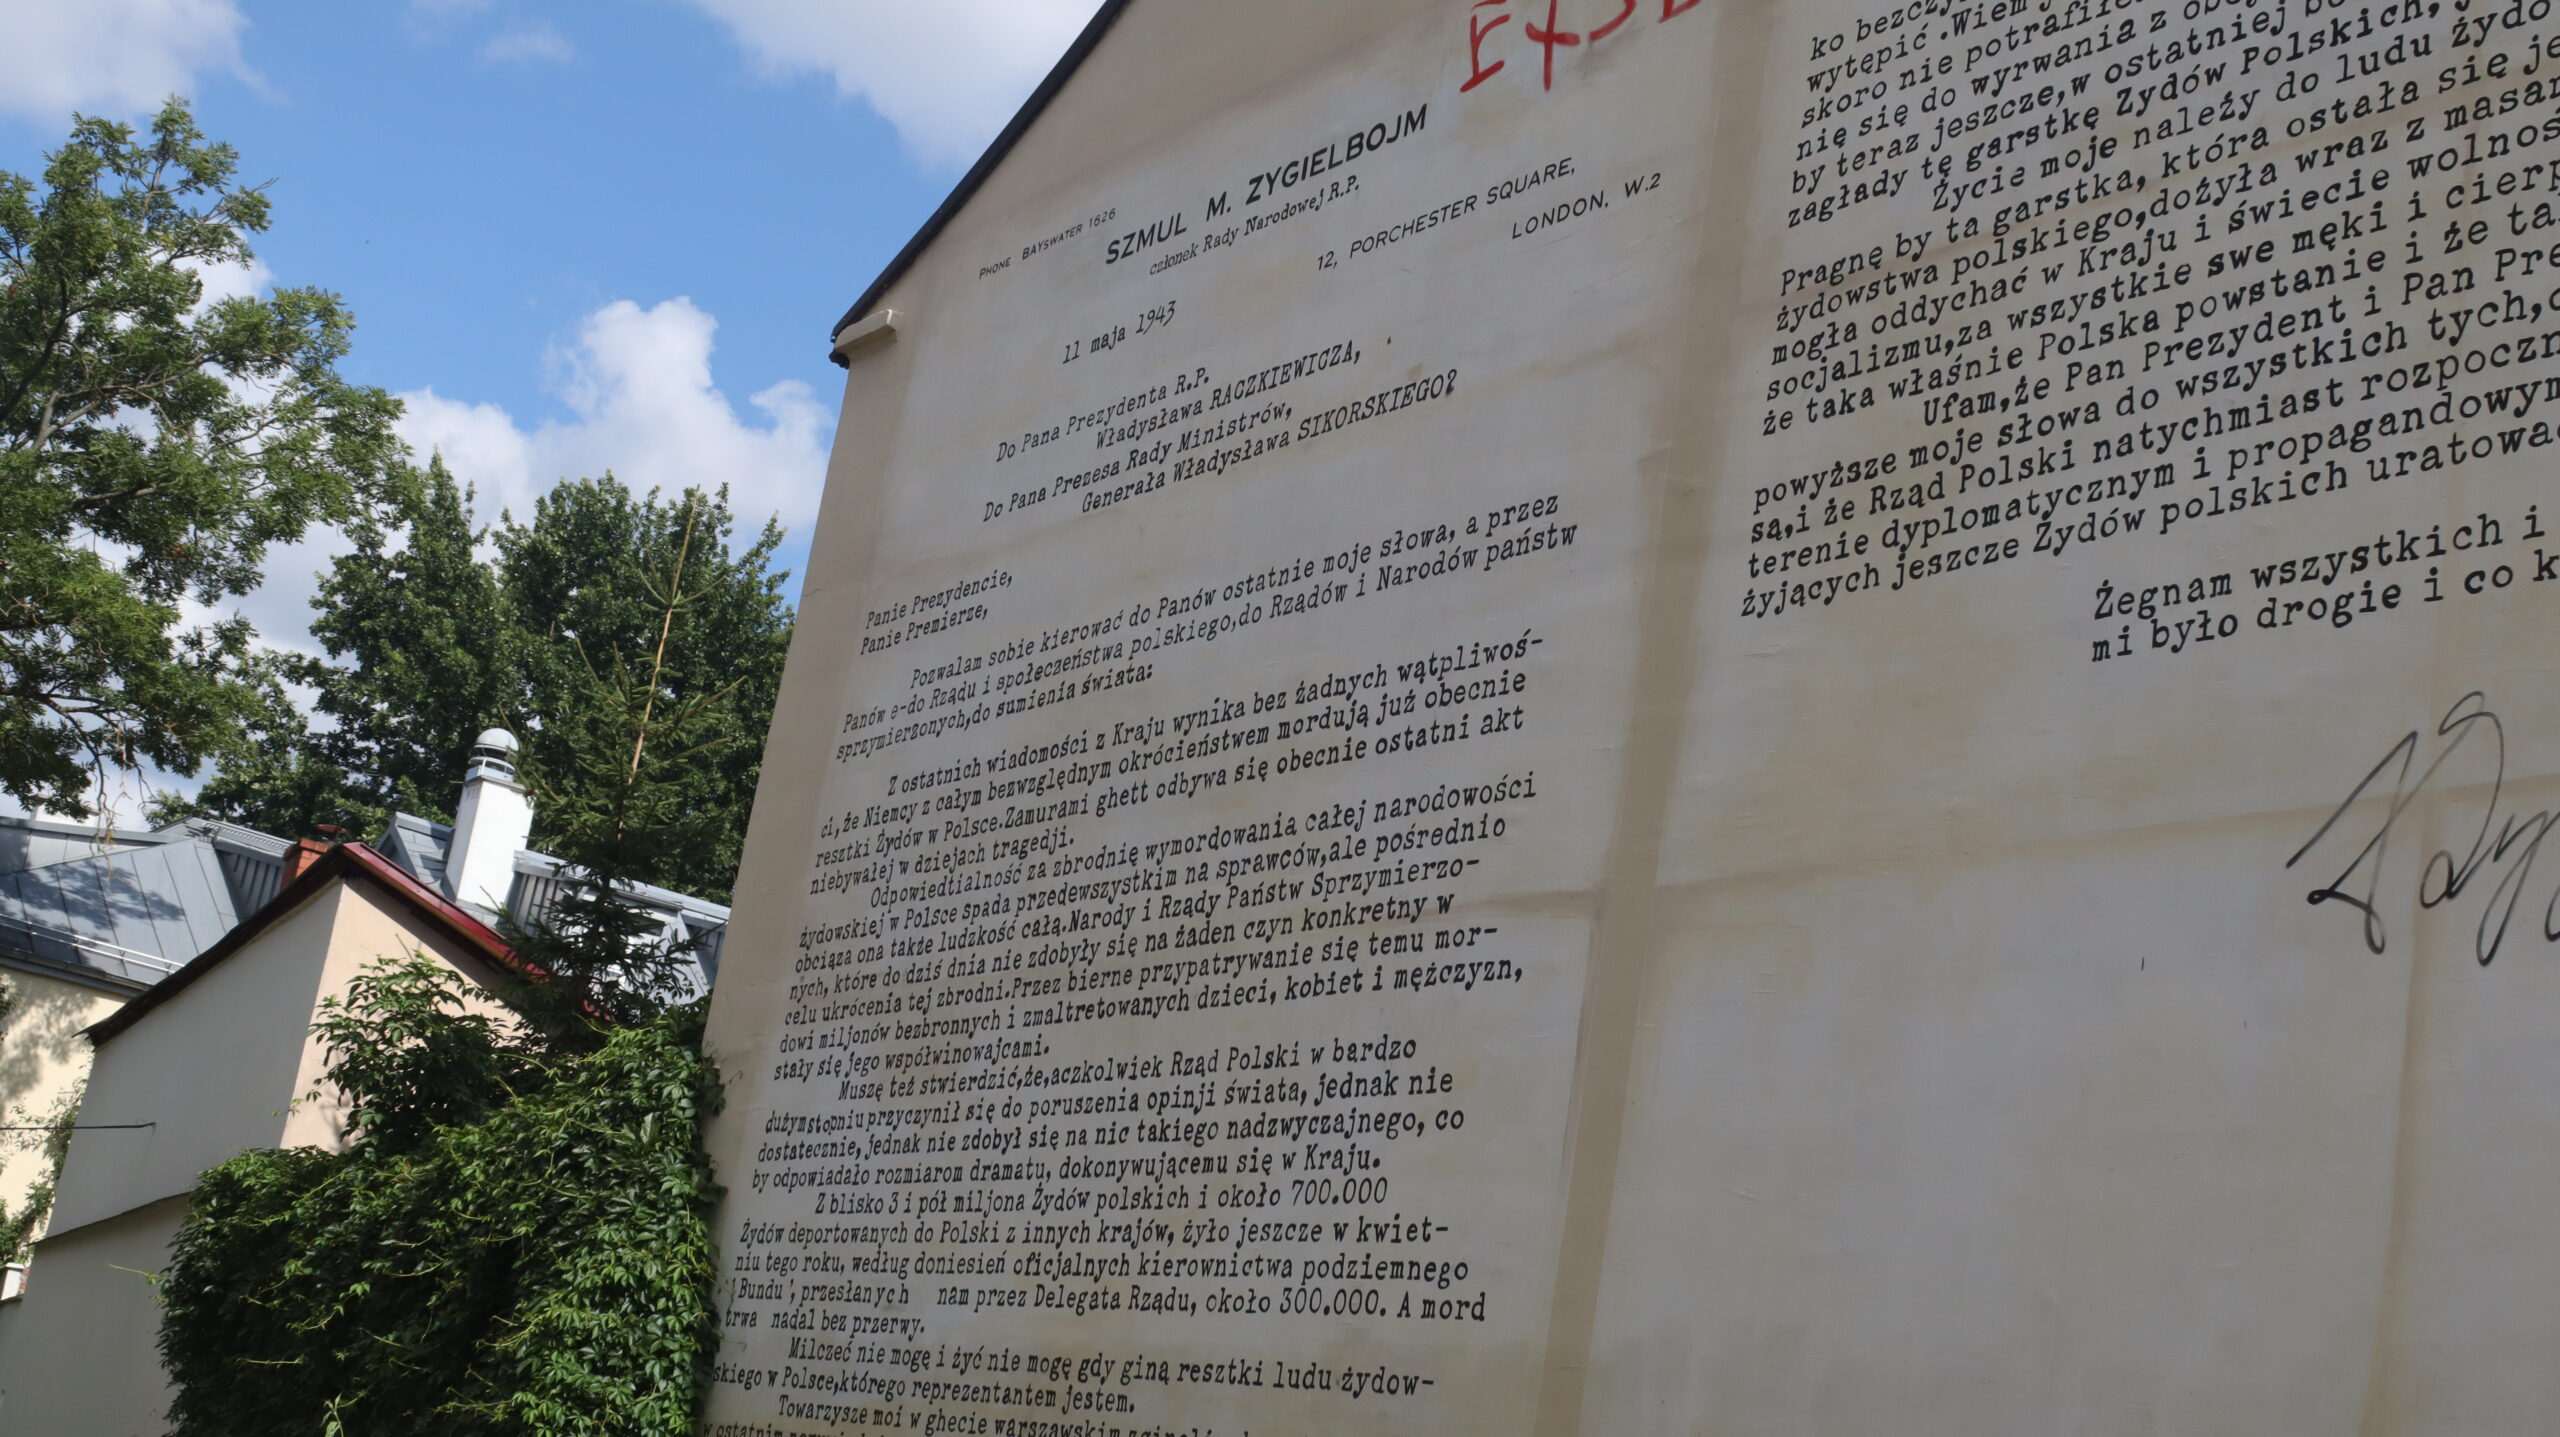 PHONE BAYSWATER 1626
SZMUL M. ZYGIELBOJM
członek Rady Narodowej R.P.
12, PORCHESTER SQUARE,
LONDON, W.2
11 maja 1943
Do Pana Prezydenta R.P.
Władysława RACZKIEWICZA,
Do Pana Prezesa Rady Ministrów,
Generała Władysława SIKORSKIEGO?
Panie Prezydencie,
Panie Premierze,
Pozwalam sobie kierować do Panów ostatnie moje słowa, a przez
Panów e-do Rządu i społeczeństwa polskiego,do Rządów i Narodów państw
sprzymierzonych,do sumienia świata:
Z ostatnich wiadomości z Kraju wynika bez żadnych wątpliwoś-
ci,że Niemcy z całym bezwzględnym okrócieństwem mordują już obecnie
resztki Żydów w Polsce.Zamurami ghett odbywa się obecnie ostatni akt
niebywałej w dziejach tragedji.
Odpowiedtialność za zbrodnię wymordowania całej narodowości
żydowskiej w Polsce spada przedewszystkim na sprawców,ale pośrednio
obciąza ona także ludzkość całą.Narody i Rządy Państw Sprzymierzo-
nych, które do dziś dnia nie zdobyły się na żaden czyn konkretny w
celu ukrócenia tej zbrodni.Przez bierne przypatrywanie się temu mor-
dowi miljonów bezbronnych i zmaltretowanych dzieci, kobiet i mężczyzn,
stały się jego współwinowajcami.
Muszę też stwierdzić,że,aczkolwiek Rząd Polski w bardzo
dużymstopniu przyczynił się do poruszenia opinji świata, jednak nie
dostatecznie, jednak nie zdobył się na nic takiego nadzwyczajnego, co
by odpowiadało rozmiarom dramatu, dokonywującemu się w Kraju.
Z blisko 3 i pół miljona Żydów polskich i około 700.000
Żydów deportowanych do Polski z innych krajów, żyło jeszcze w kwiet-
niu tego roku, według doniesień oficjalnych kierownictwa podziemnego
'Bundu', przesłanych nam przez Delegata Rządu, około 300.000. A mord
trwa nadal bez przerwy.
Milczeć nie mogę i żyć nie mogę gdy giną resztki ludu żydow-
skiego w Polsce,którego reprezentantem jestem.
Towarzysze moi w ghecie warszawskim
w ostatnim
ko
wytępić .Wiem
skoro nie potrafiłem
nię się do wyrwania z
by teraz jeszcze,w ostatniej
zagłady tę garstkę Żydów Polskich,
Życie moje należy do ludu żydo
Pragnę by ta garstka, która ostała się je
żydowstwa polskiego,dożyła wraz z masam
mogła oddychać w Kraju i świecie wolnoś
socjalizmu,za wszystkie swe męki i cierp
że taka właśnie Polska powstanie i że ta
Ufam,że Pan Prezydent i Pan Pre
powyższe moje słowa do wszystkich tych,
są,i że Rząd Polski natychmiast rozpoczn
terenie dyplomatycznym i propagandowym
żyjących jeszcze Żydów polskich uratowa
Żegnam wszystkich i
mi było drogie i co k